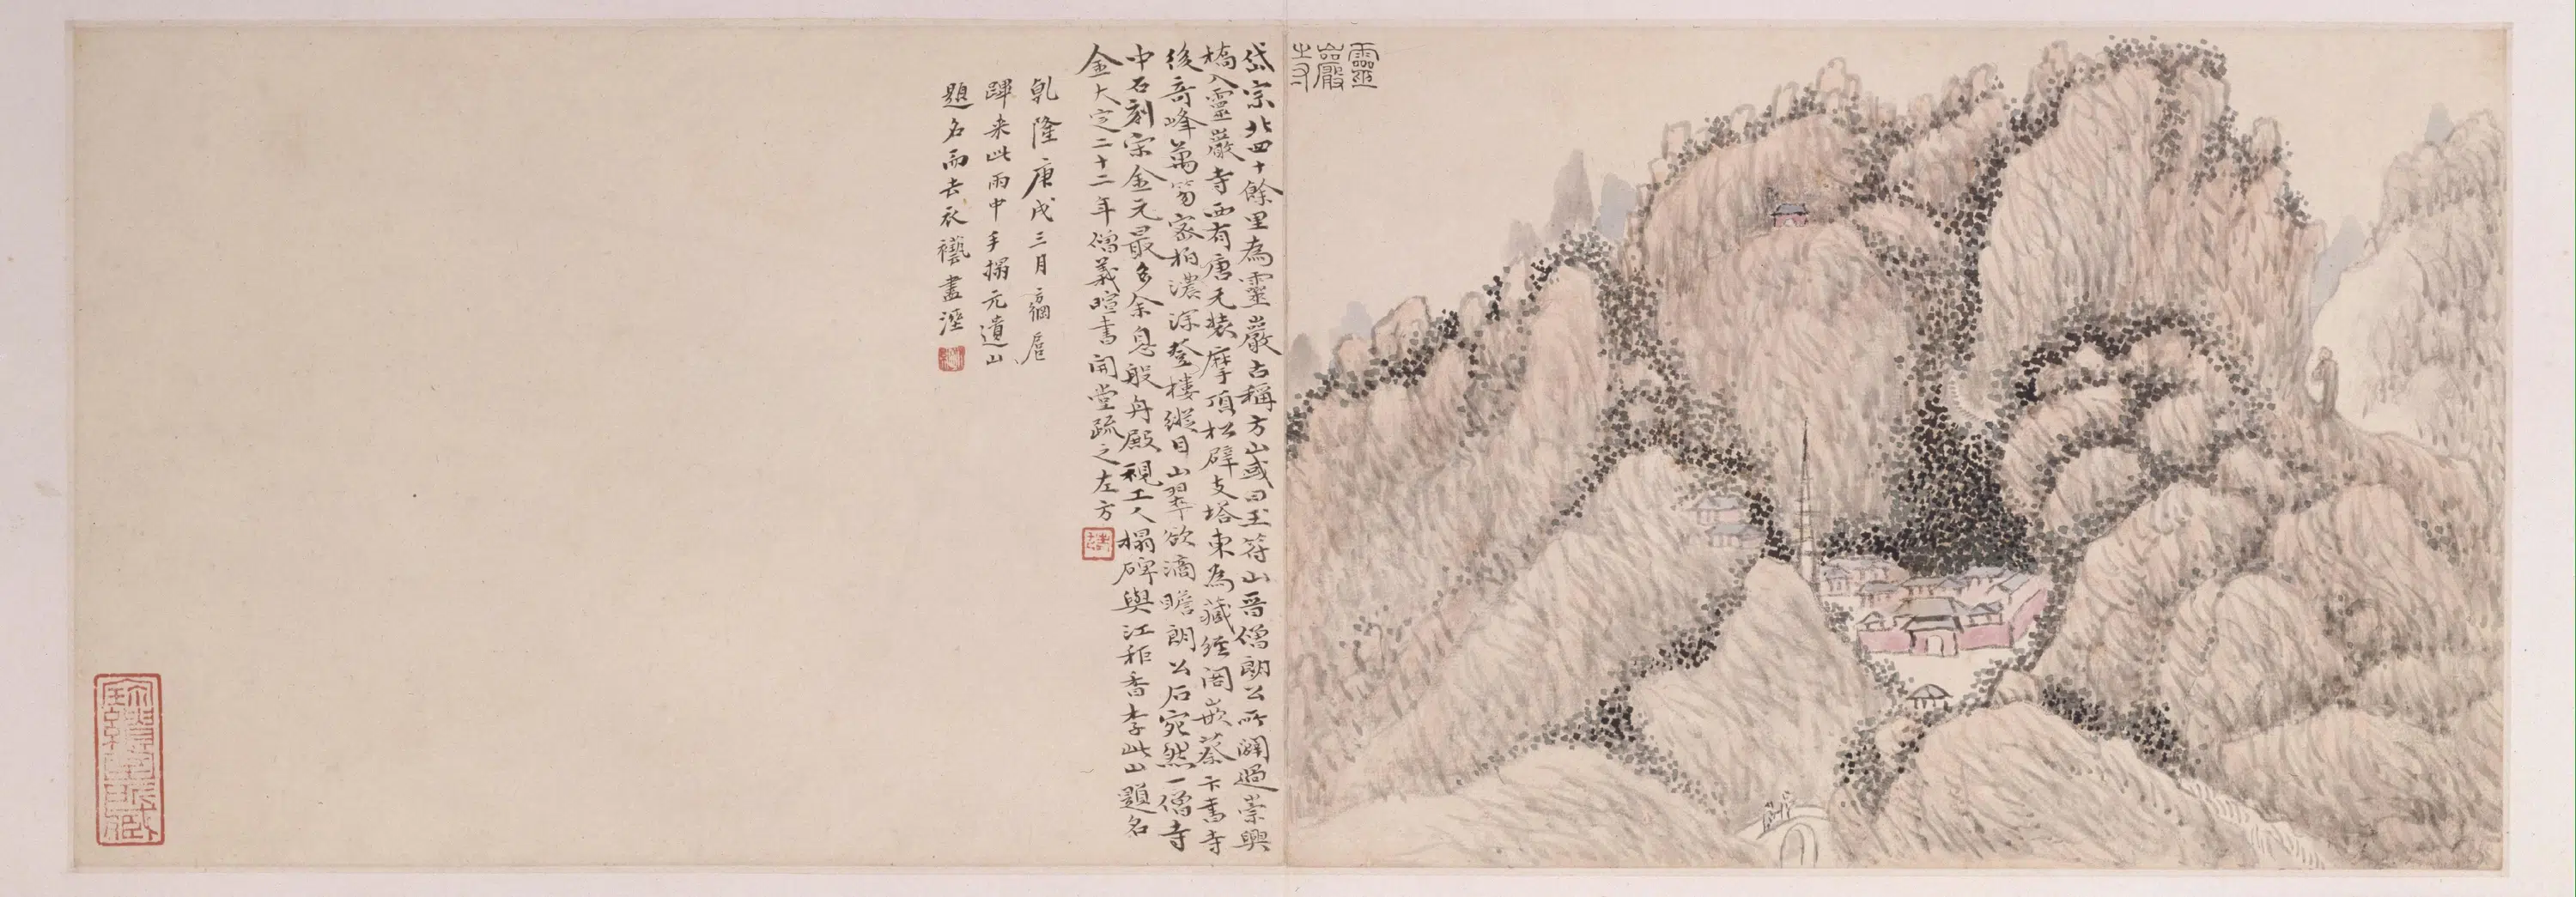 靈巖寺
岱宗北四十餘里為靈巖古稱方山或曰玉符山晉僧朗公所闢過崇興
橋入靈巖寺西有唐元奘摩頂松辟支塔東為藏經閣嵌蔡卞書寺
後奇峰萬笏密柏濃深登樓縱目山翠欲滴瞻朗公石宛然一僧寺
中石刻宋金元最多余息般舟殿視工人搨碑與江秬香李此山題名
金大定二十二年僧義暄書開堂疏之左方
乾隆庚戌三月方綱扈
蹕来此雨中手搨元遺山
題名而去衣襼盡溼